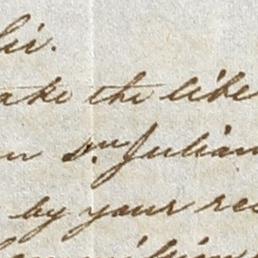 Sir.
ake the libe
n Sn Julian
by your res